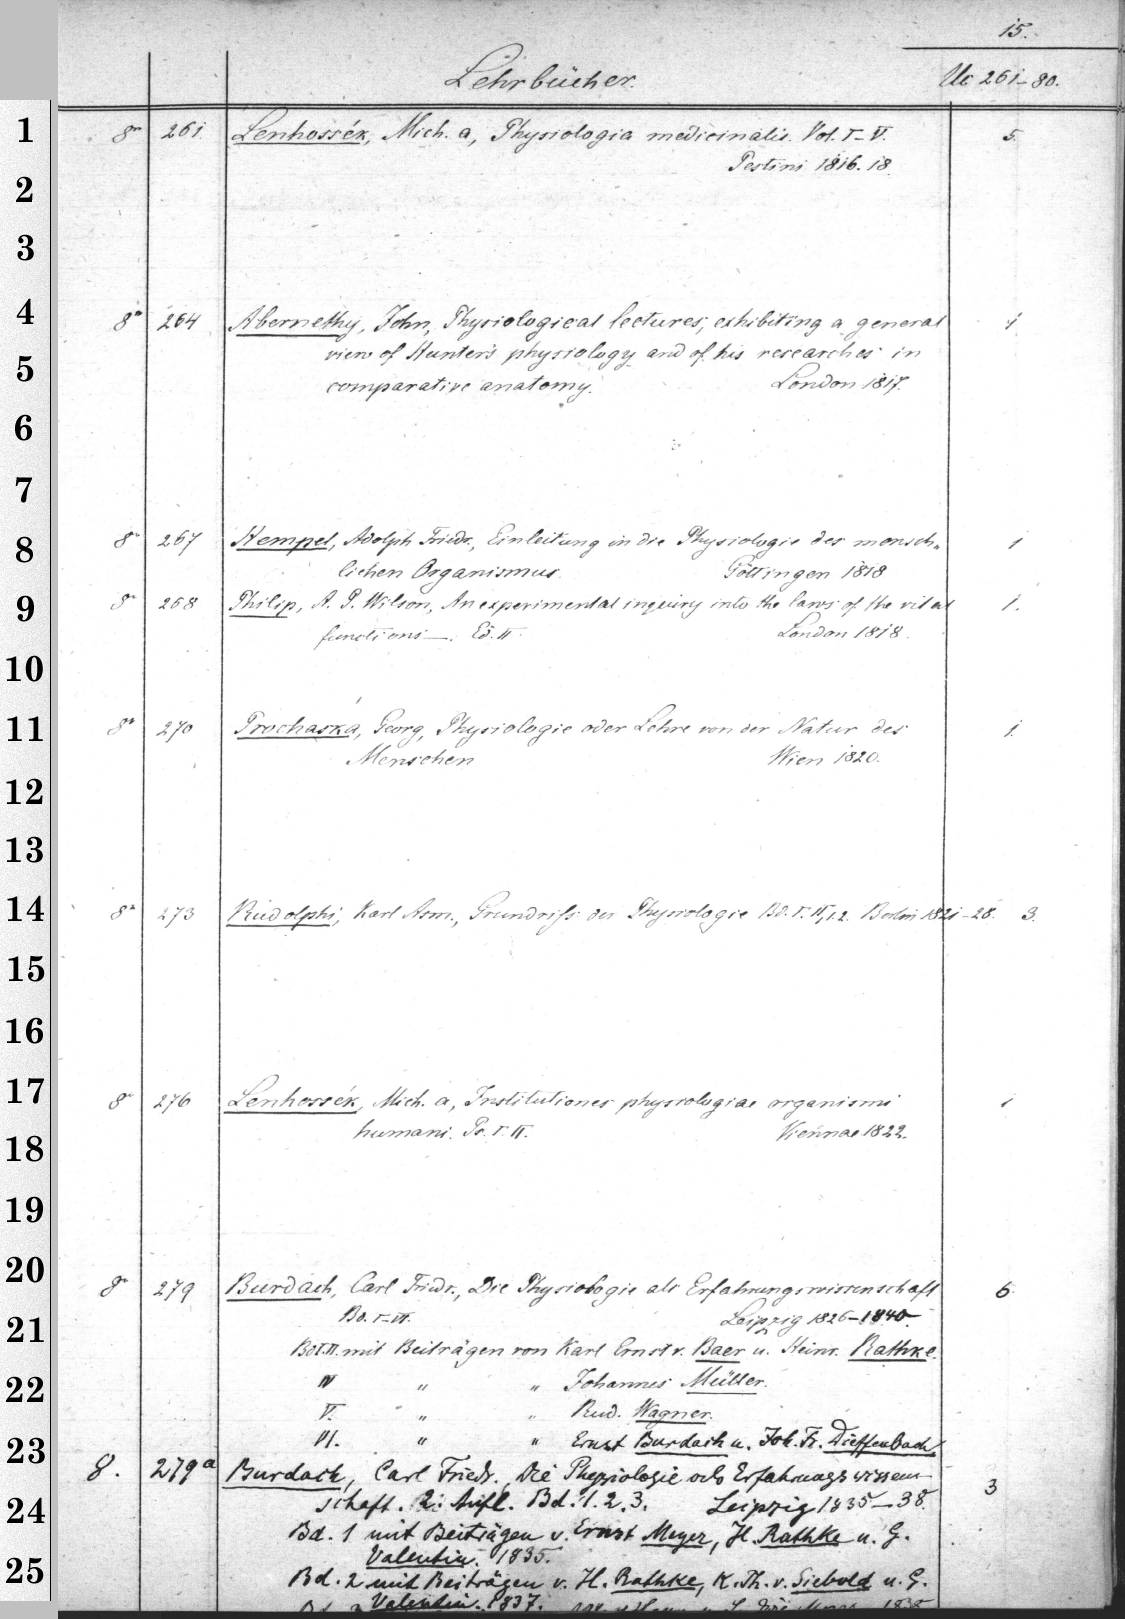 15.
Lehrbücher. Uc 261-80.
1 8° 261 Lenhossék, Mich. a, Physiologia medicinalis. Vol. I-V. 5.
Pestini 1816. 18.
2
3
4 8° 264 Abernethy, John, Physiological lectures, exhibiting a general 1
view of Hunter's physiology and of his researches in
5 comparative anatomy. London 1817.
6
7
8 8° 267 Hempel, Adolph Friedr., Einleitung in die Physiologie des mensch-
1
lichen Organismus. Göttingen 1818
9 8° 268 Philip, A. P. Wilson, An experimental inquiry into the laws of the vital 1.
functions—. Ed. II. London 1818.
10
11 8° 270 Prochaska, Georg, Physiologie oder Lehre von der Natur des 1.
Menschen Wien 1820.
12
13
14 8° 273 Rudolphi, Karl Asm., Grundriss der Physiologie Bd. I. II,1.2. Berlin 1821-28. 3.
15
16
17 8° 276 Lenhossék, Mich. a, Institutiones physiologiae organismi 1
humani. Po. I. II. Viennae 1822.
18
19
20 8° 279 Burdach, Carl Friedr., Die Physiologie als Erfahrungswissenschaft 6
21 Bd. I-VI. Leipzig 1826-1840.
Bd I. II. mit Beiträgen von Karl Ernst v. Baer u. Heinr. Rathke.
22 IV " " Johannes Müller.
V. " " Rud. Wagner.
VI. " " Ernst Burdach u. Joh. Fr. Dieffenbach
23 8. 279a Burdach, Carl Friedr. Die Physiologie als Erfahrungswissen-
3
24 schaft. 2. Aufl. Bd. 1. 2. 3. Leipzig 1835-38.
Bd. 1 mit Beiträgen v. Ernst Meyer, H. Rathke u. G.
Valentin. 1835.
25 Bd. 2 mit Beiträgen v. H. Rathke, K. Th. v. Siebold u. G.
Valentin. 1837.